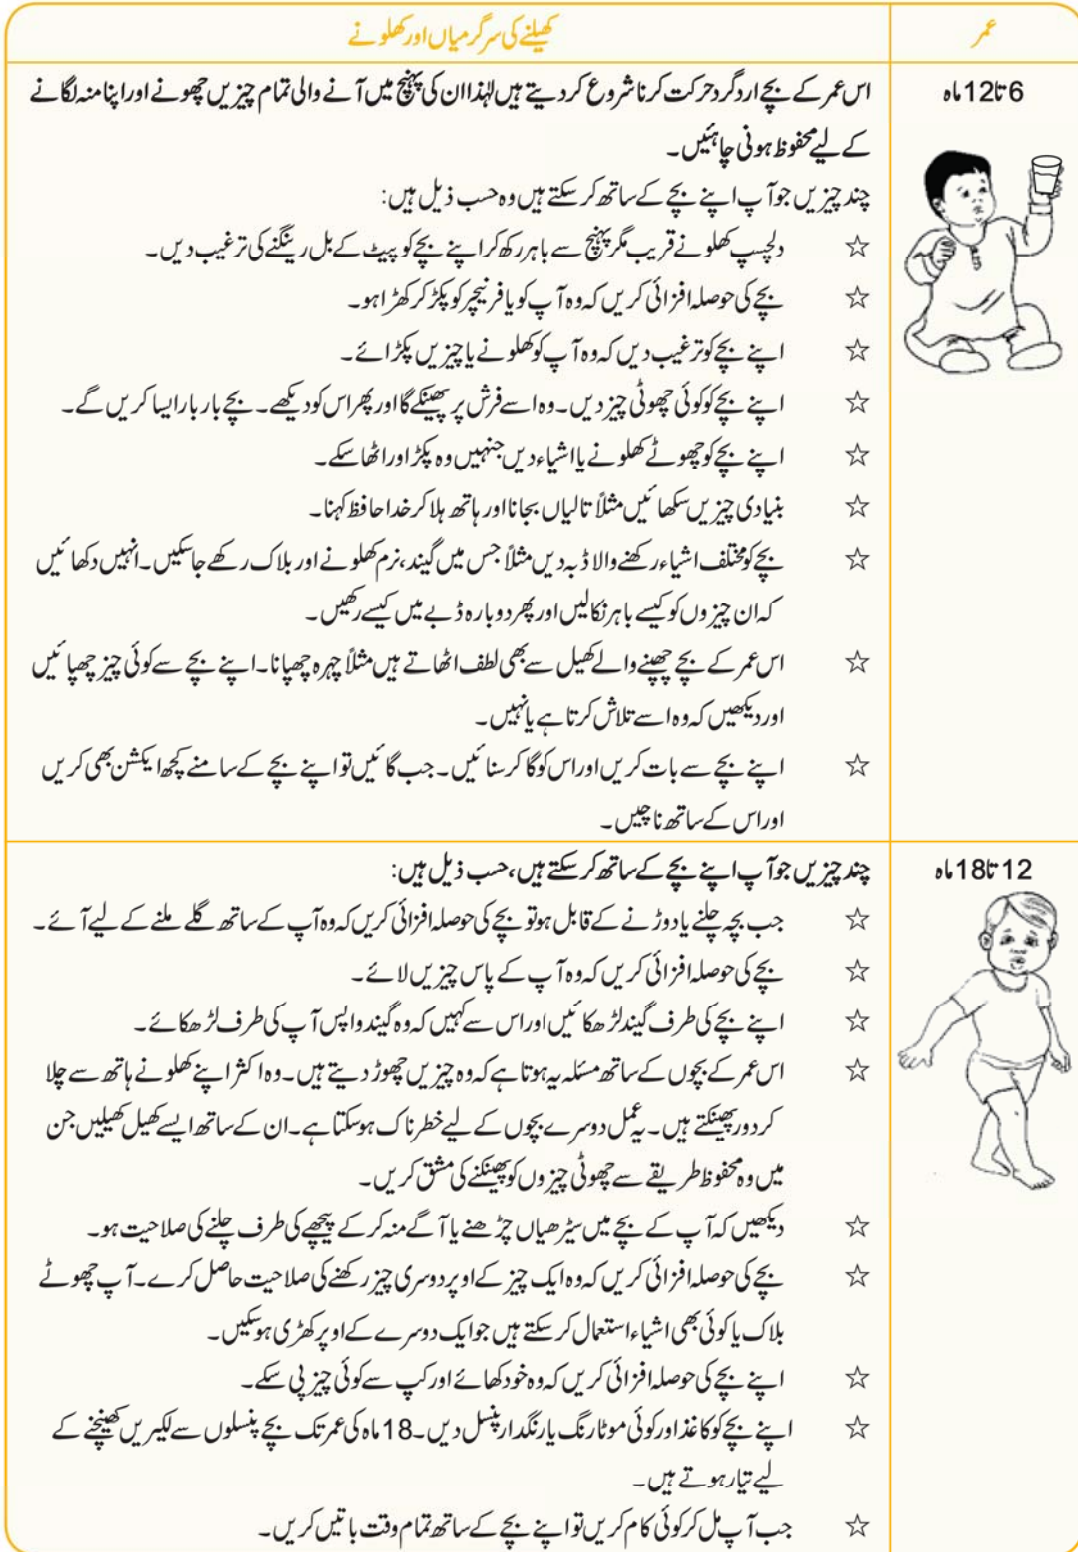 عمر
کھیلنے کی سرگرمیاں اور کھلونے
6 تا 12 ماہ
اس عمر کے بچے اردگرد حرکت کرنا شروع کر دیتے ہیں لہٰذا ان کی پہنچ میں آنے والی تمام چیزیں چھونے اور اپنا منہ لگانے
کے لیے محفوظ ہونی چاہئیں۔
چند چیزیں جو آپ اپنے بچے کے ساتھ کر سکتے ہیں وہ حسب ذیل ہیں:
☆ دلچسپ کھلونے قریب مگر پہنچ سے باہر رکھ کر اپنے بچے کو پیٹ کے بل رینگنے کی ترغیب دیں۔
☆ بچے کی حوصلہ افزائی کریں کہ وہ آپ کو یا فرنیچر کو پکڑ کر کھڑا ہو۔
☆ اپنے بچے کو ترغیب دیں کہ وہ آپ کو کھلونے یا چیزیں پکڑائے۔
☆ اپنے بچے کو کوئی چھوٹی چیز دیں۔ وہ اسے فرش پر پھینکے گا اور پھر اس کو دیکھے۔ بچے بار بار ایسا کریں گے۔
☆ اپنے بچے کو چھوٹے کھلونے یا اشیاء دیں جنہیں وہ پکڑ اور اٹھا سکے۔
☆ بنیادی چیزیں سکھائیں مثلاً تالیاں بجانا اور ہاتھ ہلا کر خدا حافظ کہنا۔
☆ بچے کو مختلف اشیاء رکھنے والا ڈبہ دیں مثلاً جس میں گیند، نرم کھلونے اور بلاک رکھے جاسکیں۔ انہیں دکھائیں
کہ ان چیزوں کو کیسے باہر نکالیں اور پھر دوبارہ ڈبے میں کیسے رکھیں۔
☆ اس عمر کے بچے چھپنے والے کھیل سے بھی لطف اٹھاتے ہیں مثلاً چہرہ چھپانا۔ اپنے بچے سے کوئی چیز چھپائیں
اور دیکھیں کہ وہ اسے تلاش کرتا ہے یا نہیں۔
☆ اپنے بچے سے بات کریں اور اس کو گا کر سنائیں۔ جب گائیں تو اپنے بچے کے سامنے کچھ ایکشن بھی کریں
اور اس کے ساتھ ناچیں۔
12 تا 18 ماہ
چند چیزیں جو آپ اپنے بچے کے ساتھ کر سکتے ہیں، حسب ذیل ہیں:
☆ جب بچہ چلنے یا دوڑنے کے قابل ہو تو بچے کی حوصلہ افزائی کریں کہ وہ آپ کے ساتھ گلے ملنے کے لیے آئے۔
☆ بچے کی حوصلہ افزائی کریں کہ وہ آپ کے پاس چیزیں لائے۔
☆ اپنے بچے کی طرف گیند لڑھکائیں اور اس سے کہیں کہ وہ گیند واپس آپ کی طرف لڑھکائے۔
☆ اس عمر کے بچوں کے ساتھ مسئلہ یہ ہوتا ہے کہ وہ چیزیں چھوڑ دیتے ہیں۔ وہ اکثر اپنے کھلونے ہاتھ سے چلا
کر دور پھینکتے ہیں۔ یہ عمل دوسرے بچوں کے لیے خطرناک ہوسکتا ہے۔ ان کے ساتھ ایسے کھیل کھیلیں جن
میں وہ محفوظ طریقے سے چھوٹی چیزوں کو پھینکنے کی مشق کریں۔
☆ دیکھیں کہ آپ کے بچے میں سیڑھیاں چڑھنے یا آگے منہ کر کے پیچھے کی طرف چلنے کی صلاحیت ہو۔
☆ بچے کی حوصلہ افزائی کریں کہ وہ ایک چیز کے اوپر دوسری چیز رکھنے کی صلاحیت حاصل کرے۔ آپ چھوٹے
بلاک یا کوئی بھی اشیاء استعمال کر سکتے ہیں جو ایک دوسرے کے اوپر کھڑی ہوسکیں۔
☆ اپنے بچے کی حوصلہ افزائی کریں کہ وہ خود کھائے اور کپ سے کوئی چیز پی سکے۔
☆ اپنے بچے کو کاغذ اور کوئی موٹا رنگ یا رنگدار پنسل دیں۔ 18 ماہ کی عمر تک بچے پنسلوں سے لکیریں کھینچنے کے
لیے تیار ہوتے ہیں۔
☆ جب آپ مل کر کوئی کام کریں تو اپنے بچے کے ساتھ تمام وقت باتیں کریں۔